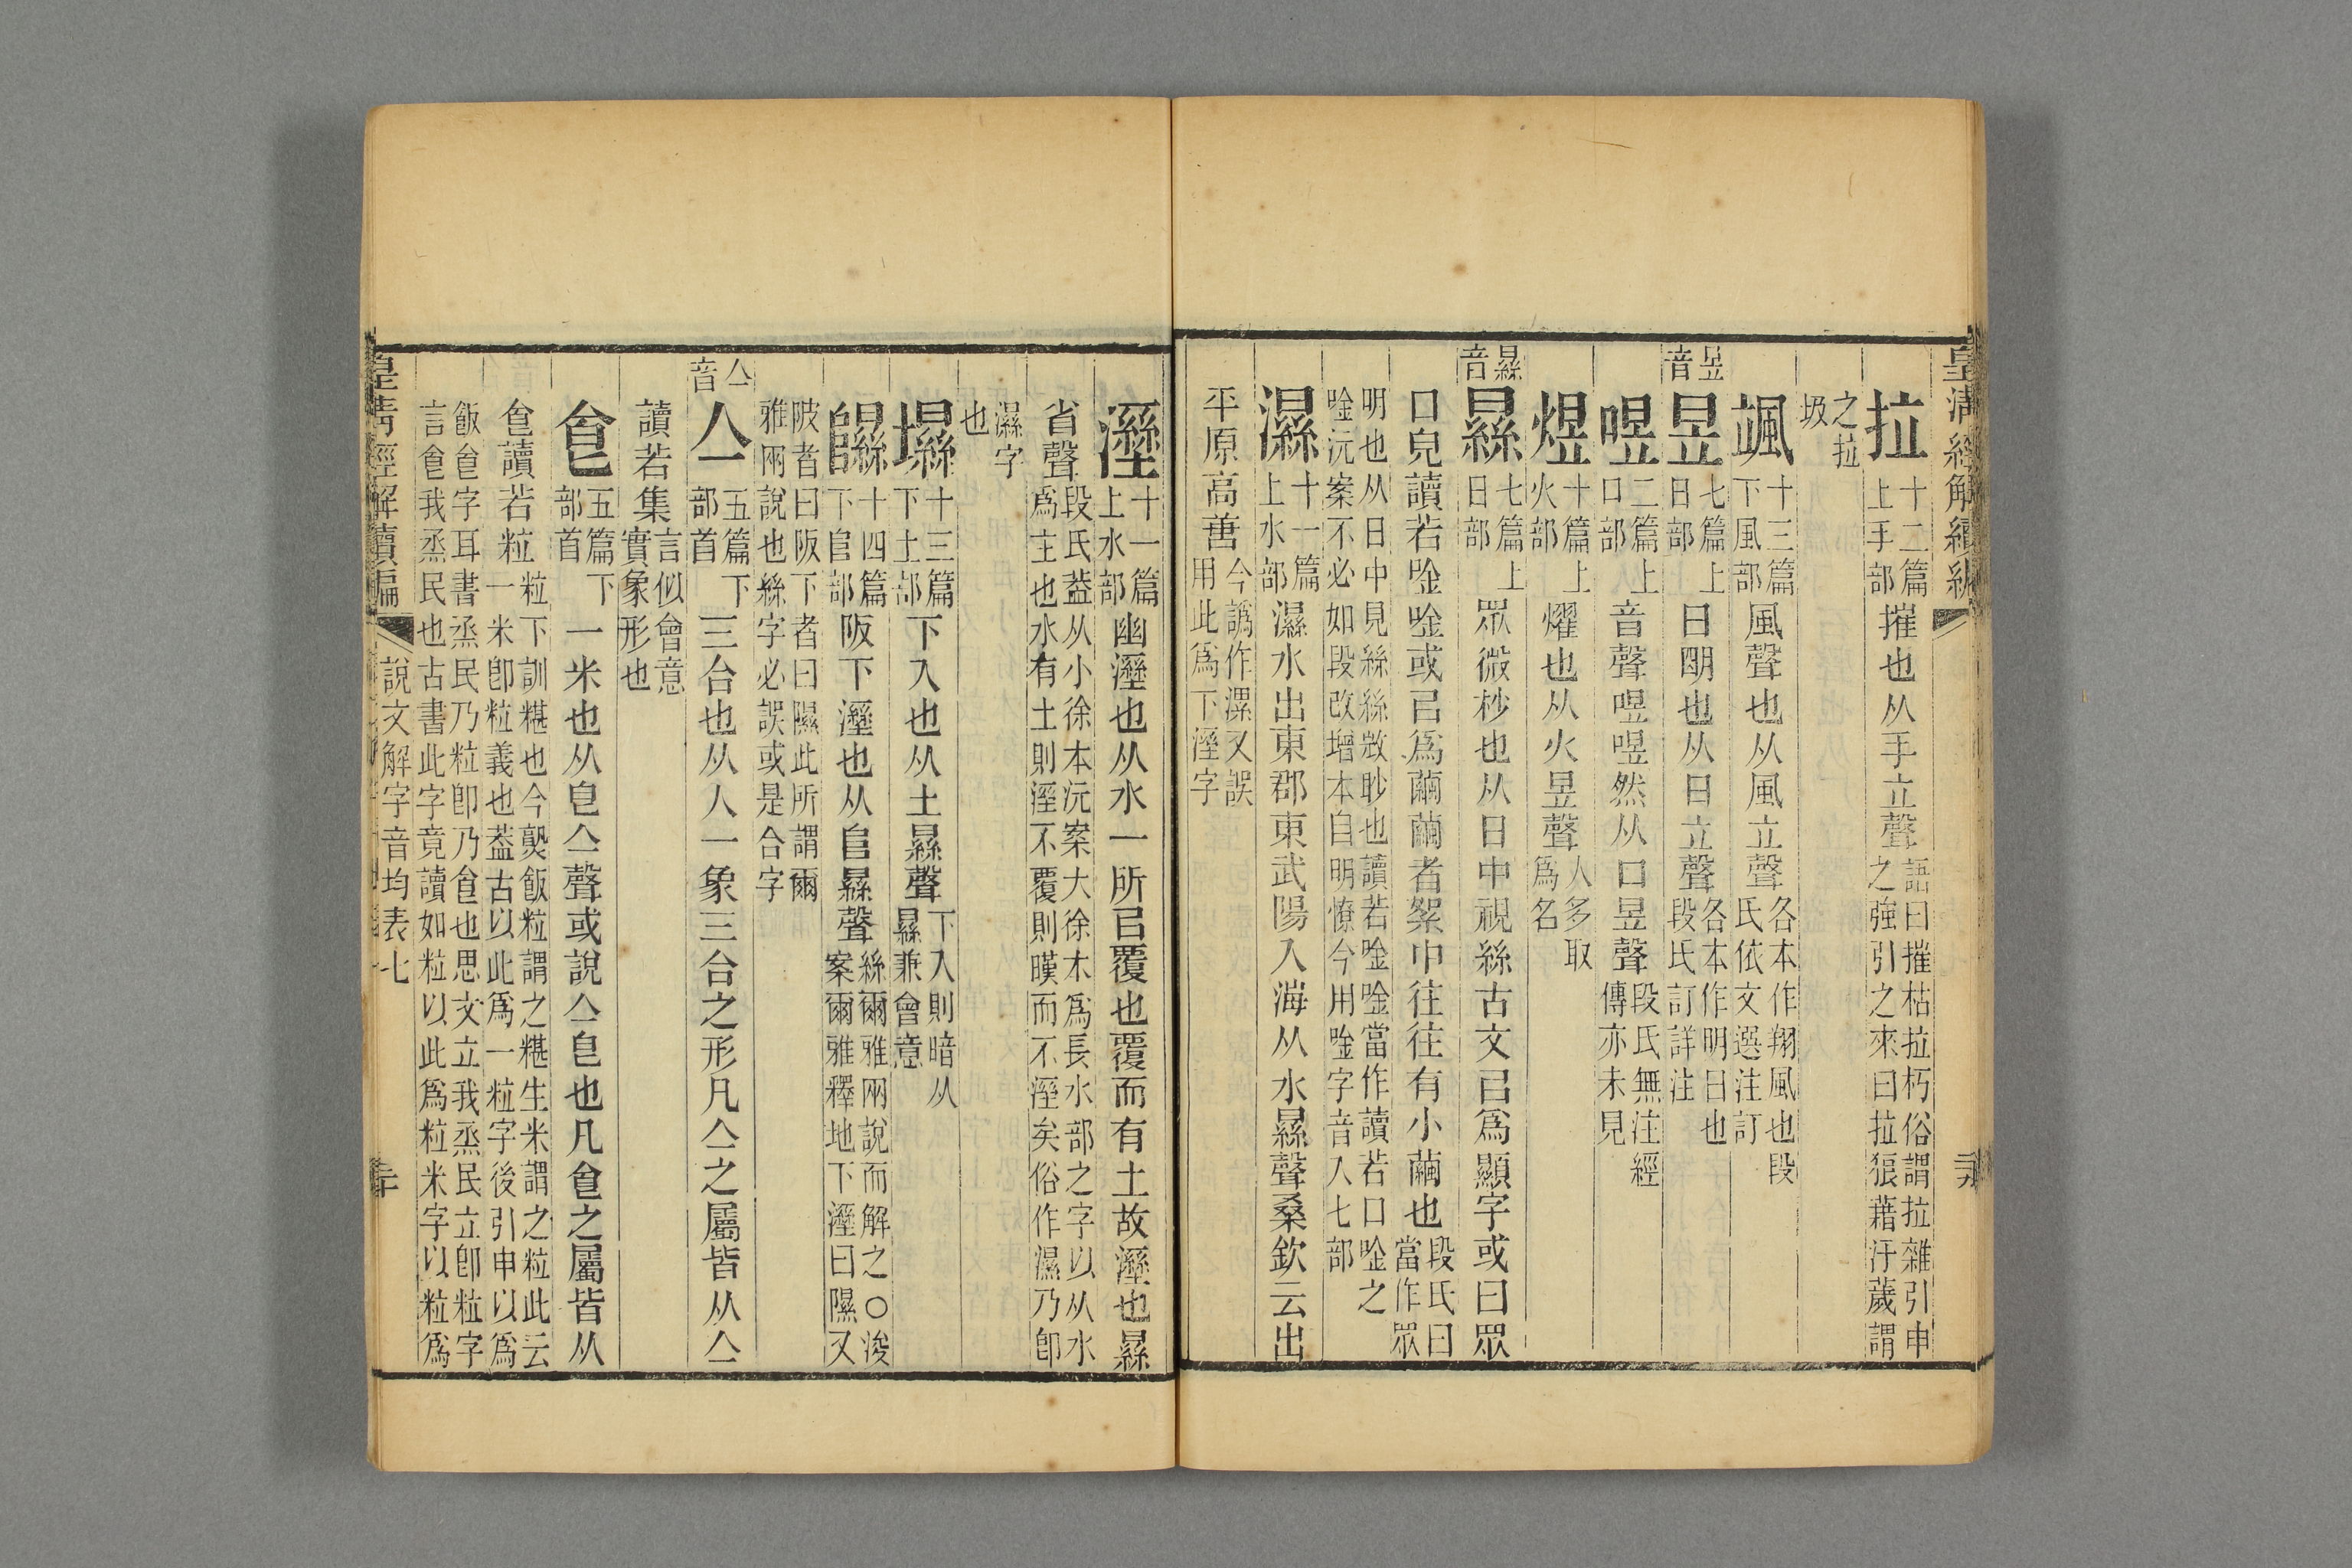 皇清經解續編
拉十二篇上手部摧也从手立聲語曰摧枯拉朽俗謂拉雜引申之強引之來曰拉㹞藉汙薉謂
之拉圾
颯十三篇下風部風聲也从風立聲各本作翔風也段氏依文選注訂
昱音
昱七篇上日部日朙也从日立聲各本作明日也段氏訂詳注
喅二篇上口部音聲喅喅然从口昱聲段氏無注經傳亦未見
煜十篇上火部燿也从火昱聲人多取爲名
㬎音
㬎七篇上日部眾微杪也从日中視絲古文㠯爲顯字或曰眾
口皃讀若唫唫或㠯爲繭繭者絮中往往有小繭也段氏曰當作眾
明也从日中見絲絲散眇也讀若唫唫當作讀若口唫之唫沅案不必如段改增本自明憭今用唫字音入七部
濕十一篇上水部濕水出東郡東武陽入海从水㬎聲桑欽云出
平原高唐今譌作漯又誤用此爲下溼字
溼十一篇上水部幽溼也从水一所㠯覆也覆而有土故溼也㬎
省聲段氏蓋从小徐本沅案大徐本爲長水部之字以从水爲主也水有土則溼不覆則暵而不溼矣俗作濕乃卽
濕字也
㙷十三篇下土部下入也从土㬎聲下入則暗从㬎兼會意
隰十四篇下𨸏部阪下溼也从𨸏㬎聲絲爾雅兩說而解之〇浚案爾雅釋地下溼曰隰又
陂者曰阪下者曰隰此所謂爾雅兩說也絲字必誤或是合字
亼音
亼五篇下部首三合也从人一象三合之形凡亼之屬皆从亼
讀若集言似會意實象形也
皀五篇下部首一米也从皀亼聲或說亼皀也凡食之屬皆从
食讀若粒粒下訓糂也今熟飯粒謂之糂生米謂之粒此云一米卽粒義也蓋古以此爲一粒字後引申以爲
飯食字耳書烝民乃粒卽乃食也思文立我烝民立卽粒字言食我烝民也古書此字竟讀如粒以此爲粒米字以粒爲
皇清經解續編
說文解字音均表七